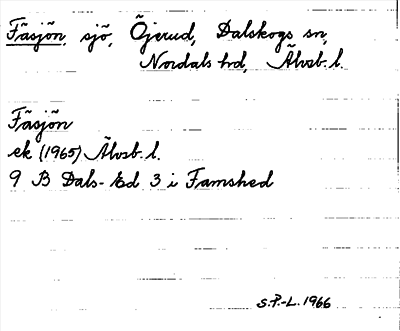 Fäsjön, sjö, Öjerud, Dalskogs sn,
Nordals hd, Älvsb. l.
Fäsjön
ek (1965) Älvsb. l.
9 B Dals-Ed 3 i Famshed
S.P.-L. 1966